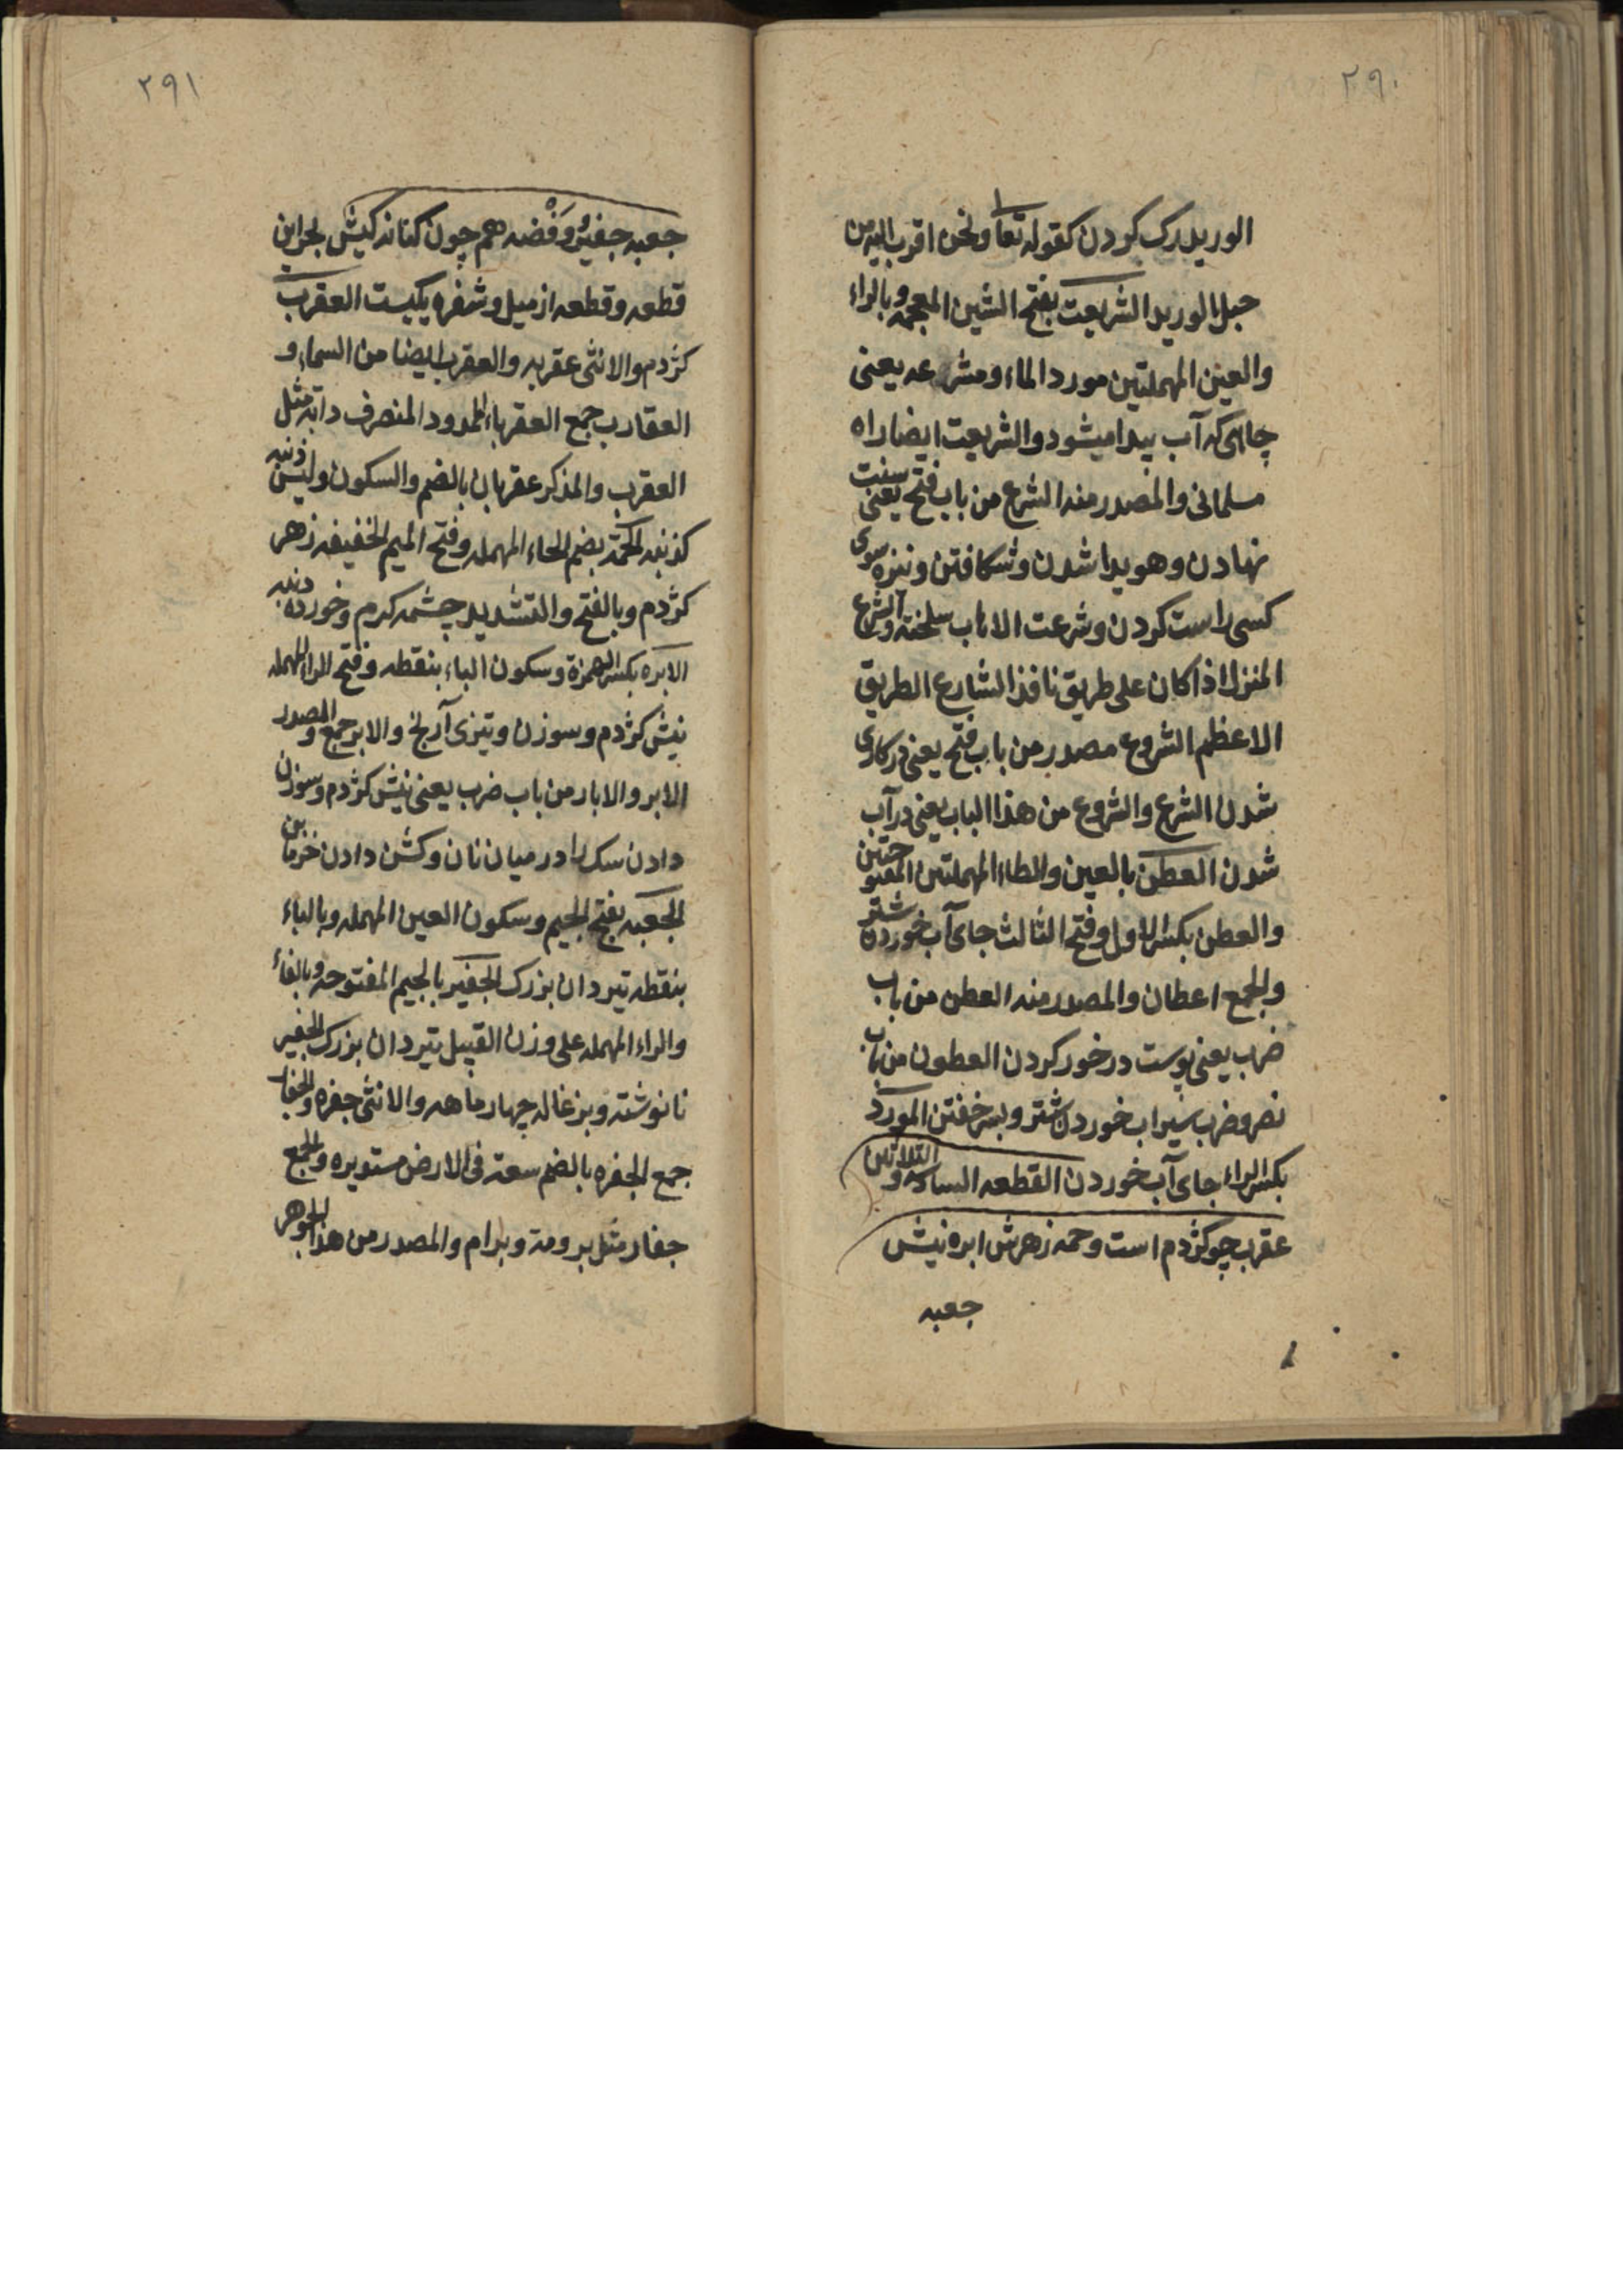 ٢٩٠
الوريد رك كردن كقوله تعا ونحن اقرب اليه من
حبل الوريد الشريعت بفتح الشين المعجمه وبالراء
والعين المهملتين مورد الماء ومشرعه يعنى
چاهى كه آب پيدا ميشود والشريعت ايضا راه
مسلمانى والمصدر منه الشرع من باب فتح يعنى سنت
نهادن وهويدا شدن وشكافتن ونيزه سوى
كسى راست كردن وشرعت الاهاب سلخته والشرع
المنزل اذا كان على طريق نافذ الشارع الطريق
الاعظم الشروع مصدر من باب فتح يعنى در كارى
شدن الشرع والشروع من هذا الباب يعنى در آب
شدن العطن بالعين والطاء المهملتين المفتوحتين
والعطن بكسر الاول وفتح الثالث جاى آب خوردن شتر
والجمع اعطان والمصدر منه العطن من باب
ضرب يعنى پوست در خور كردن العطون من باب
نصر وضرب سيراب خوردن شتر و خفتن المورد
بكسر الراء جاى آب خوردن القطعه السادسه والثلاثين
عقرب چو كژدم است وحمه زهرش ابره نيش
جعبه
٢٩١
جعبه جفير ووفضه هم چون كنانه كيش بحر اين
قطعه وقطعه از ميل وشفره يكيست العقرب
كژدم والانثى عقربه والعقرب ايضا من السماء و
العقارب جمع العقرباء الممدود المنصرف دابه مثل
العقرب والمذكر عقربان بالضم والسكون وليس ذنبه
كذنبه الحمة بضم الحاء المهمله وفتح الميم الخفيفه زهر
كژدم وبالفتح والتشديد چشمه كرم وخورده دنبه
الابره بكسر الهمزة وسكون الباء بنقطه وفتح الراء المهمله
نيش كژدم وسوزن وتيزى آرنج والابر جمع والمصدر
الابر والابار من باب ضرب يعنى نيش كژدم وسوزن
دادن سك را در ميان نان وكشن دادن خرما بن
الجعبه بفتح الجيم وسكون العين المهمله وبالباء
بنقطه تيردان بزرك الجفير بالجيم المفتوحه وبالفاء
والراء المهمله على وزن القبيل تيردان بزرك الجفير
نانوشته وبزغاله چهار ماهه والانثى جفره والجفار
جمع الجفره بالضم سعة فى الارض مستويره والجمع
جفار مثل برومة وبرام والمصدر من هذا الجوهر